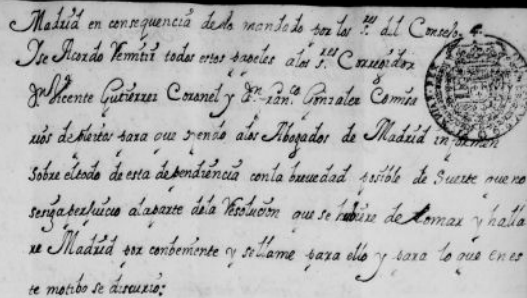 Madrid en consequencia de lo mandado por los S.res del Consejo.
Y se Acordo Remitir todos estos papeles a los S.res Corregidor
Dn Vicente Gutierrez Coronel y Dn Fran.co Gonzalez Comisa
rios de para que oyendo a los Abogados de Madrid informen
sobre el todo de esta dependencia con la brevedad posible de Suerte que no
tenga perjuicio a la parte de la Resolucion que se hubiere de tomar y halla
re Madrid por conbeniente y se llame para ello y para lo que en es
te motibo se discurrio: